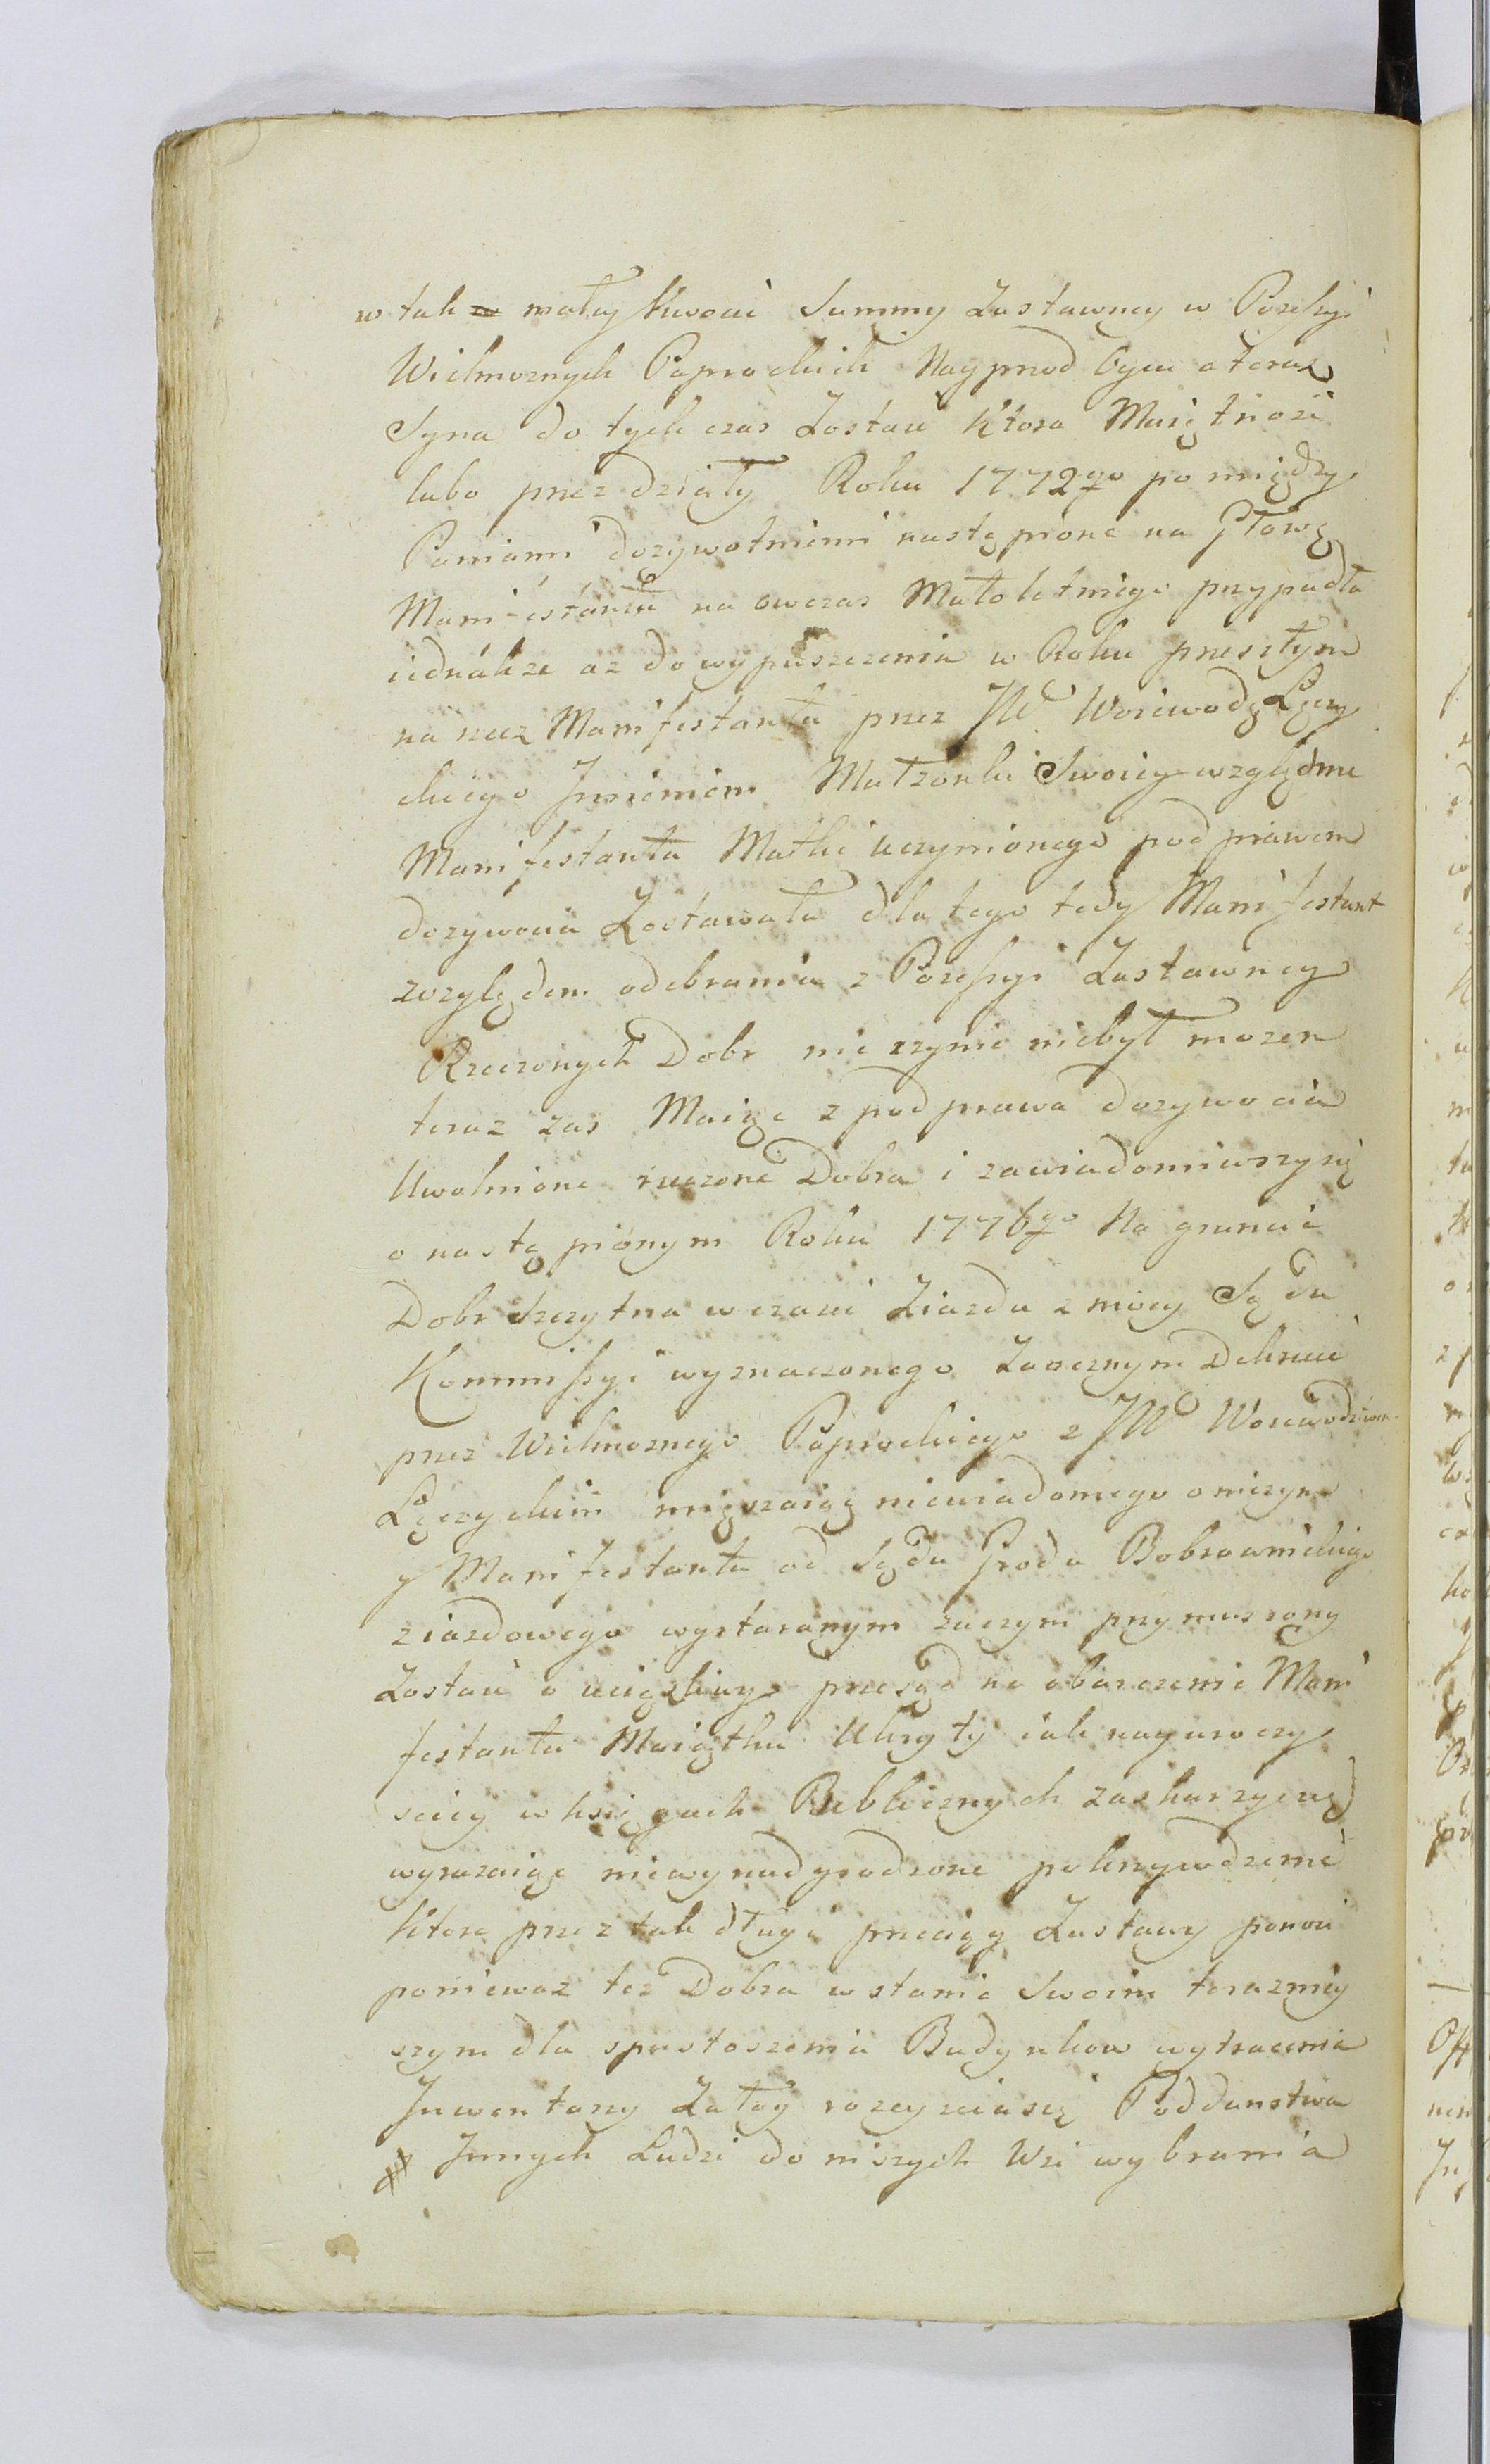 w tak małey kwocie Summy Zastawney w Possessyi
Wielmoznych Paprockich Nayprzod Oyca a teraz
Syna do tych czas Zostaie Ktora Maiętnosć
lubo przez działy Roku 1772go pomiędzy
Paniami dozywotniemi nastąpione na Głowę
Manifestanta na owczas Małoletniego przypadła
iednakze az do wypuszczenia w Roku przeszłym
na rzecz Manifestanta przez JW Woiewodę Łęczy
ckiego Jmieniem Małzonki Swoiey względnie
Manifestanta Matki uczynionego pod prawem
dozywocia Zostawała dla tego tedy Manifestant
względem odebrania z Possessyi Zastawney
Rzeczonych Dobr nic czynic niebył mozen
teraz zas Maiąc z pod prawa dozywocia
Uwolnione rzeczone Dobra i zawiadomiwszy się
o nastąpionym Roku 1776go Na gruncie
Dobr Szczytna w czasie Ziazdu z mocy Sądu
Kommissyi wyznaczonego Zaocznym Dekrecie
przez Wielmoznego Paprockiego z JW Woiewodziem
Łęczyckim niewiadomego o niczym
y Manifestanta od Sądu Grodu Bobrownickiego
ziazdowego wystaranym zaczym przymuszony
Zostaie o uciązliwy przesąd na obarczenie Mani
festanta Maiątku Ukryty iak nayuroczy
sciey w księgach Publicznych zaskarzyc się
wyrazaiąc niewynadgrodzone pokrzywdzenie
ktore przez tak długi przeciąg Zastawy ponosi
poniewaz tez Dobra w stanie Swoim terazniey
szym dla spustoszenia Budynkow wytracenia
Jnwentarzy Załog rozeyscia się Poddanstwa
Jnnych Ludzi do niszych Wsi wybrania